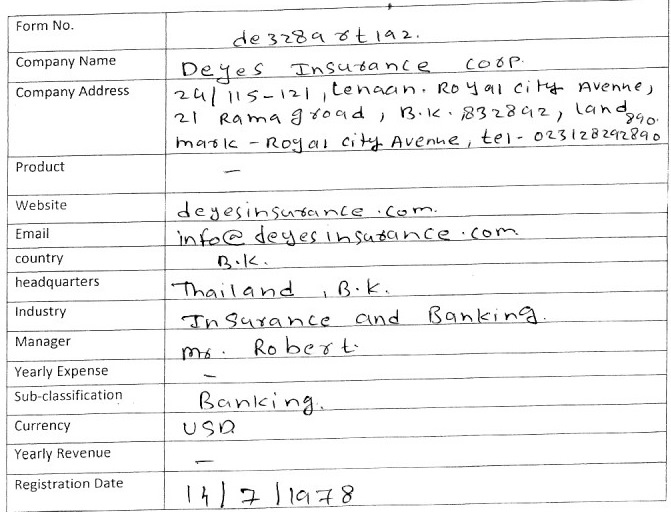 Form No. de328a8t1a2.
Company Name Deyes Insurance coop.
Company Address 24/115-121, tenaan. Royal city Avenne,
21 Rama groad, B.K. 832892, land
mark - Royal city Avenne, tel - 023128292890
890.
Product -
Website deyesinsurance.com.
Email info@deyesinsurance.com
country B.K.
headquarters Thailand, B.K.
Industry Insurance and Banking.
Manager mr. Robert.
Yearly Expense -
Sub-classification Banking.
Currency USD
Yearly Revenue -
Registration Date 14/7/1978